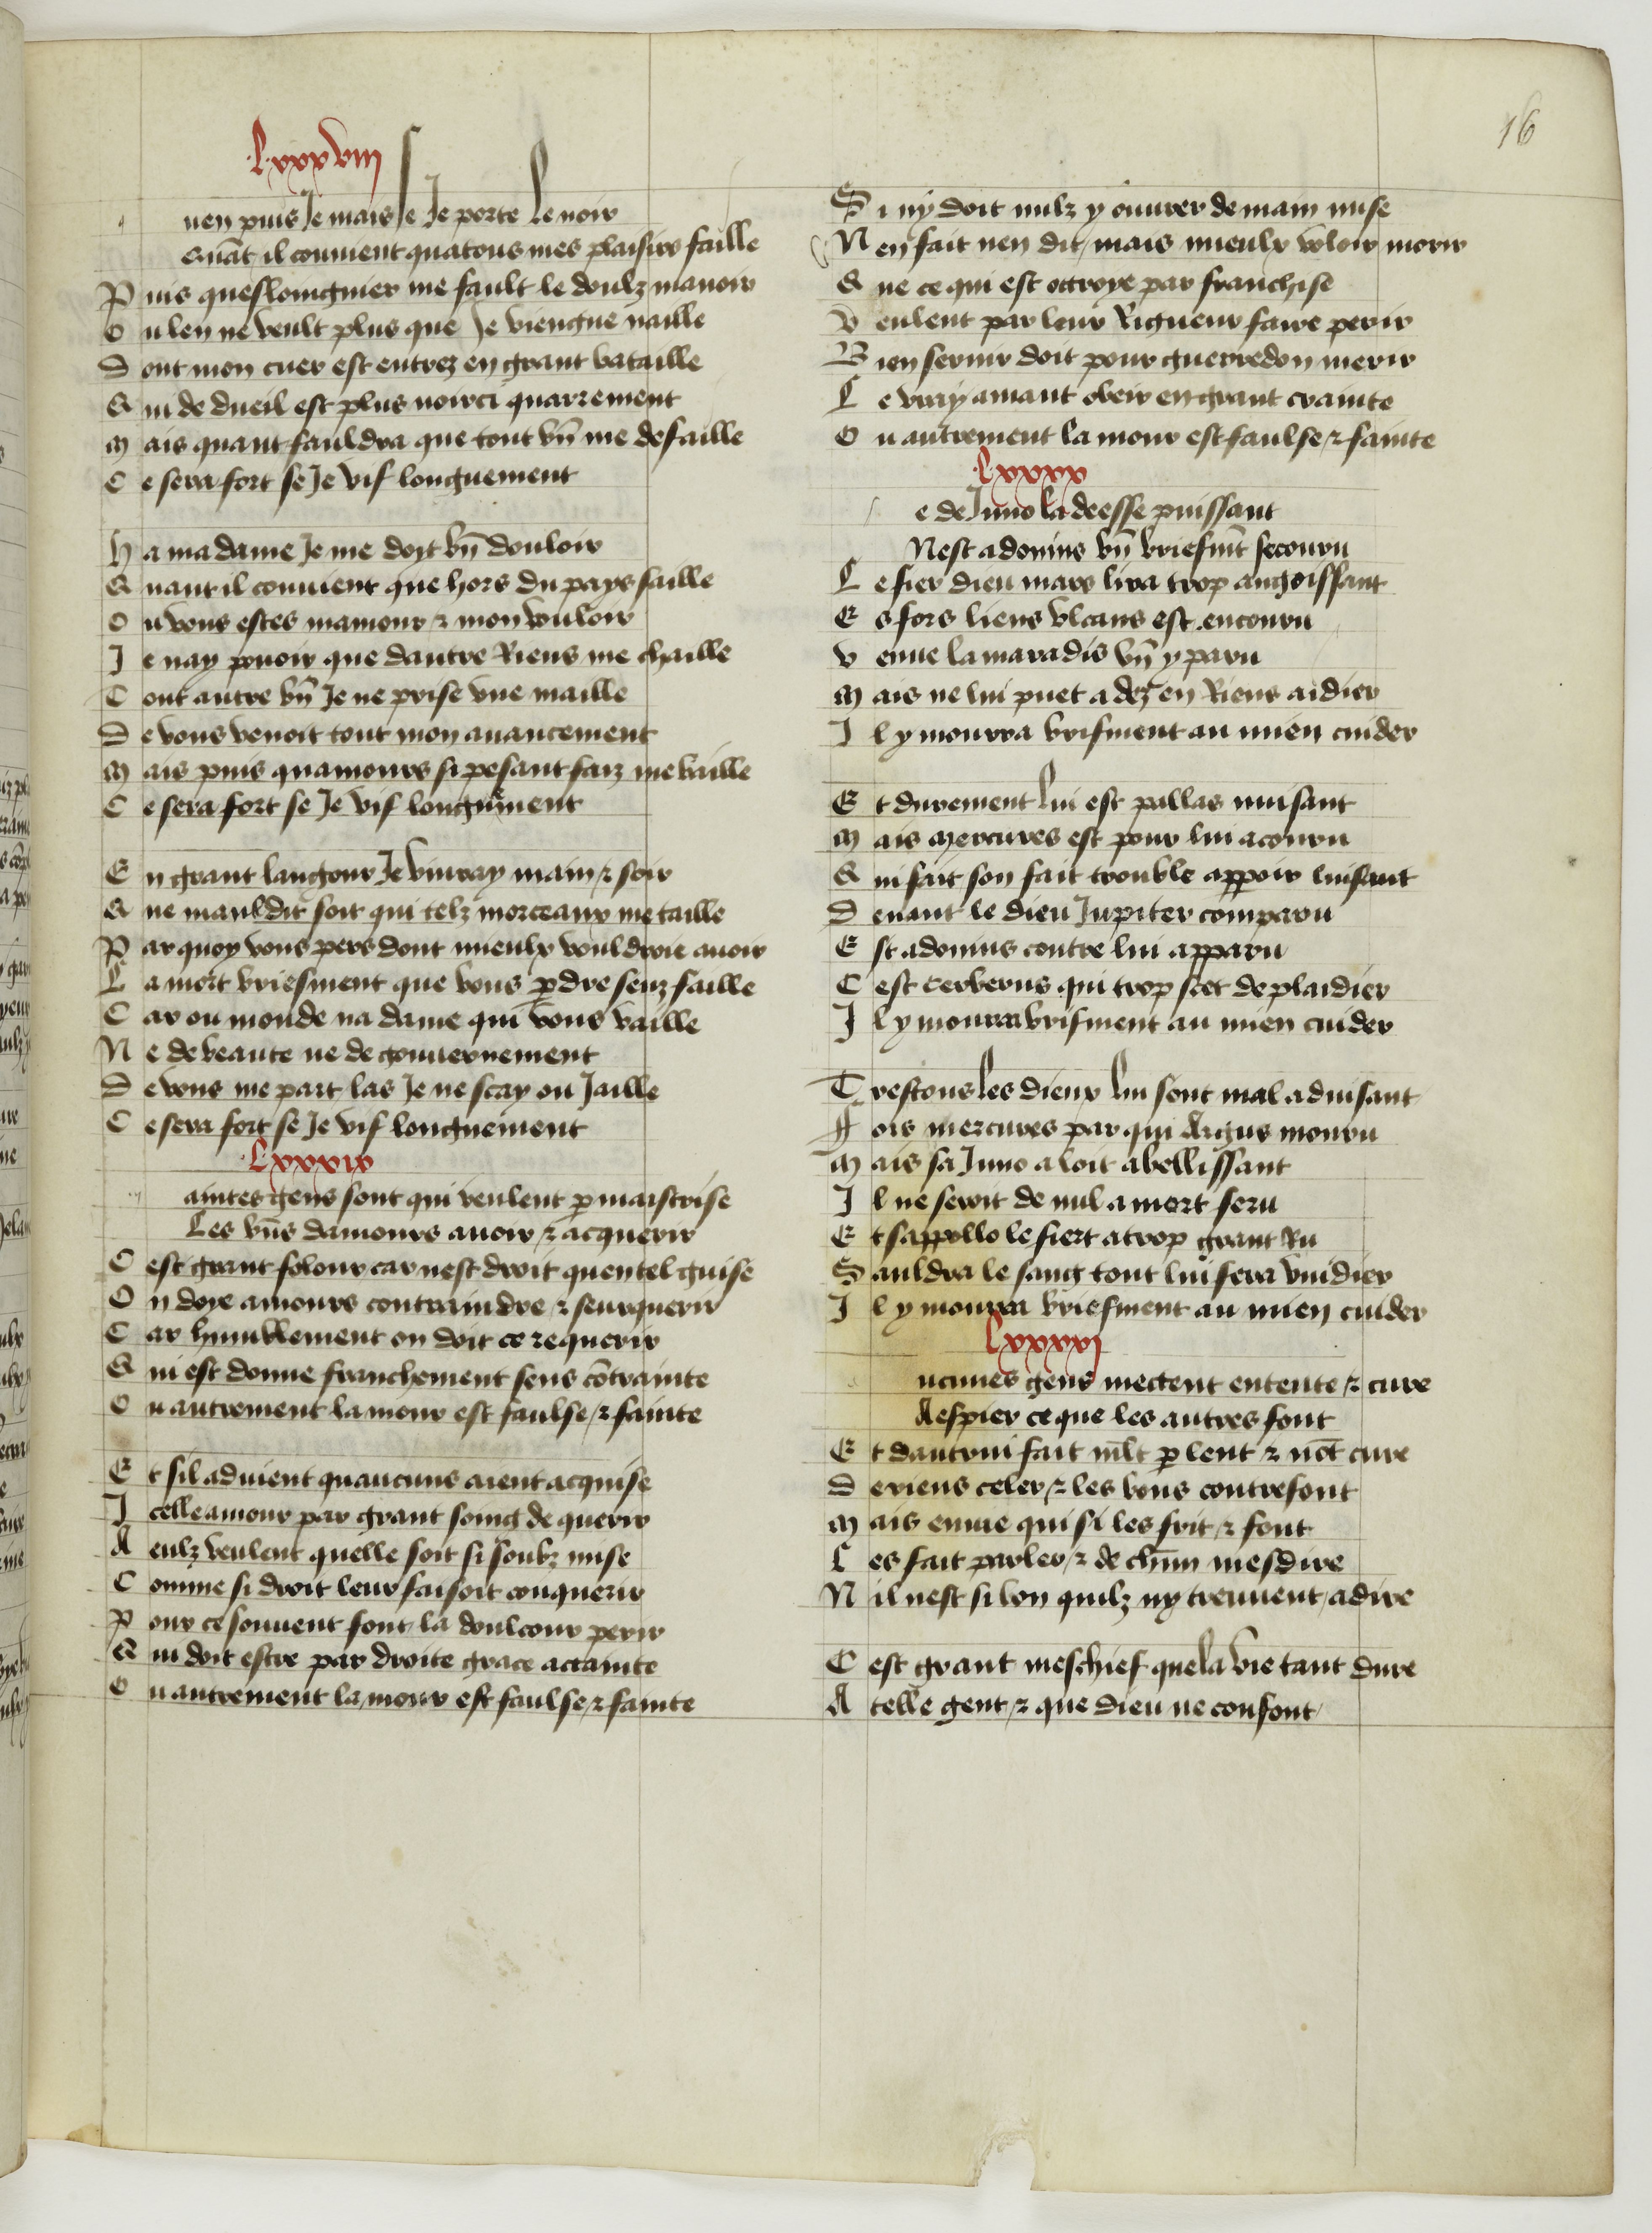 16
.Lxxxviii
uen puis Je mais se Je porte le noir
Quāt il conuient qua tous mes plaisirs faille
Puis queslongnier me fault le doulz manoir
Ou len ne veult plus que Je viengne naille
Dont mon cuer est entrez en grant bataille
Qui de dueil est plus noirci quarrement
Mais quant fauldra que tout bn̄ me defaille
Ce sera fort se Je vif longuement
Ha ma dame Je me doy bn̄ douloir
Quant il conuient que hors du pays saille
Ou vous estes mamour ⁊ mon vouloir
Je nay pouoir que dautre Riens me chaille
Tout autre bn̄ Je ne prise vne maille
De vous venoit tout mon auancement
Mais puis quamours si pesant faiz me baille
Ce sera fort se Je vif longuement
En grant langour Je viuray main ⁊ soir
Que mauldit soit qui telz morceaux me taille
Par quoy vous pers dont mieulx vouldroie auoir
La mort briefment que vous p̱dre senz faille
Car ou monde na dame qui vous vaille
Ne de beaute ne de gouuernement
De vous me part las Je ne scay ou Jaille
Ce sera fort se Je vif longuement
.Lxxxix
aintes gens sont qui veulent p̱ maistrise
Les bn̄s damours auoir ⁊ acquerir
Cest grant folour car nest droit quen tel guise
On doye amours contraindre ⁊ seurquerir
Car humblement on doit ce requerir
Qui est donne franchement sens cōtrainte
Ou autrement lamour est faulse ⁊ fainte
Et sil aduient quaucuns aient acquise
Icelle amour par grant soing de querir
A eulz veulent quelle soit si soubz mise
Comme si droit leur faisoit conquerir
Pour ce souuent font la doulcour perir
Qui doit estre par droite grace attainte
Ou autrement lamour est faulse ⁊ fainte
Si ny doit nulz y ouurer de main mise
Nen fait nen dit mais mieulx voloir morir
Que ce qui est ottroye par franchise
Veulent par leur Rigueur faire perir
Bien seruir doit pour guerredon merir
Le vray amant obeir en grant crainte
Ou autrement lamour est faulse ⁊ fainte
.Lxxxx
e de Juno la deesse puissant
Nest adonius bn̄ briefmt̄ secouru
Le fier dieu mars lira trop angoissant
Es fors liens vlcans est encouru
Venue la maradis bn̄ y paru
Mais ne lui puet adez en Riens aidier
Il y mourra brifment au mien cuider
Et durement lui est pallas nuisant
Mais Mercures est pour lui acouru
Qui fait son fait trouble appoir luisant
Deuant le dieu Jupiter comparu
Est adonius contre lui apparu
Cest cerberus qui trop scet de plaidier
Il y mourra brifment au mien cuider
Trestous les dieux lui sont mal aduisant
Fors mercures par qui Argus mouru
Mais sa Juno aloit abellissant
Il ne seroit de nul a mort feru
Et sappollo le fiert a trop grant Ru
Sauldra le sang tout lui fera vuidier
Il y mourra briefment au mien cuider
Lxxxxi
ucunes gens mectent entente ⁊ cure
A espier ce que les autres font
Et dautrui fait ml̄t p̱lent ⁊ nōt cure
De riens celer ⁊ les bons contrefont
Mais enuie qui si les frit ⁊ font
Les fait parler ⁊ de chūn mesdire
Nil nest si bon quilz ny treuuent a dire
Cest grant meschief que la vie tant dure
A telle gent ⁊ que dieu ne confont